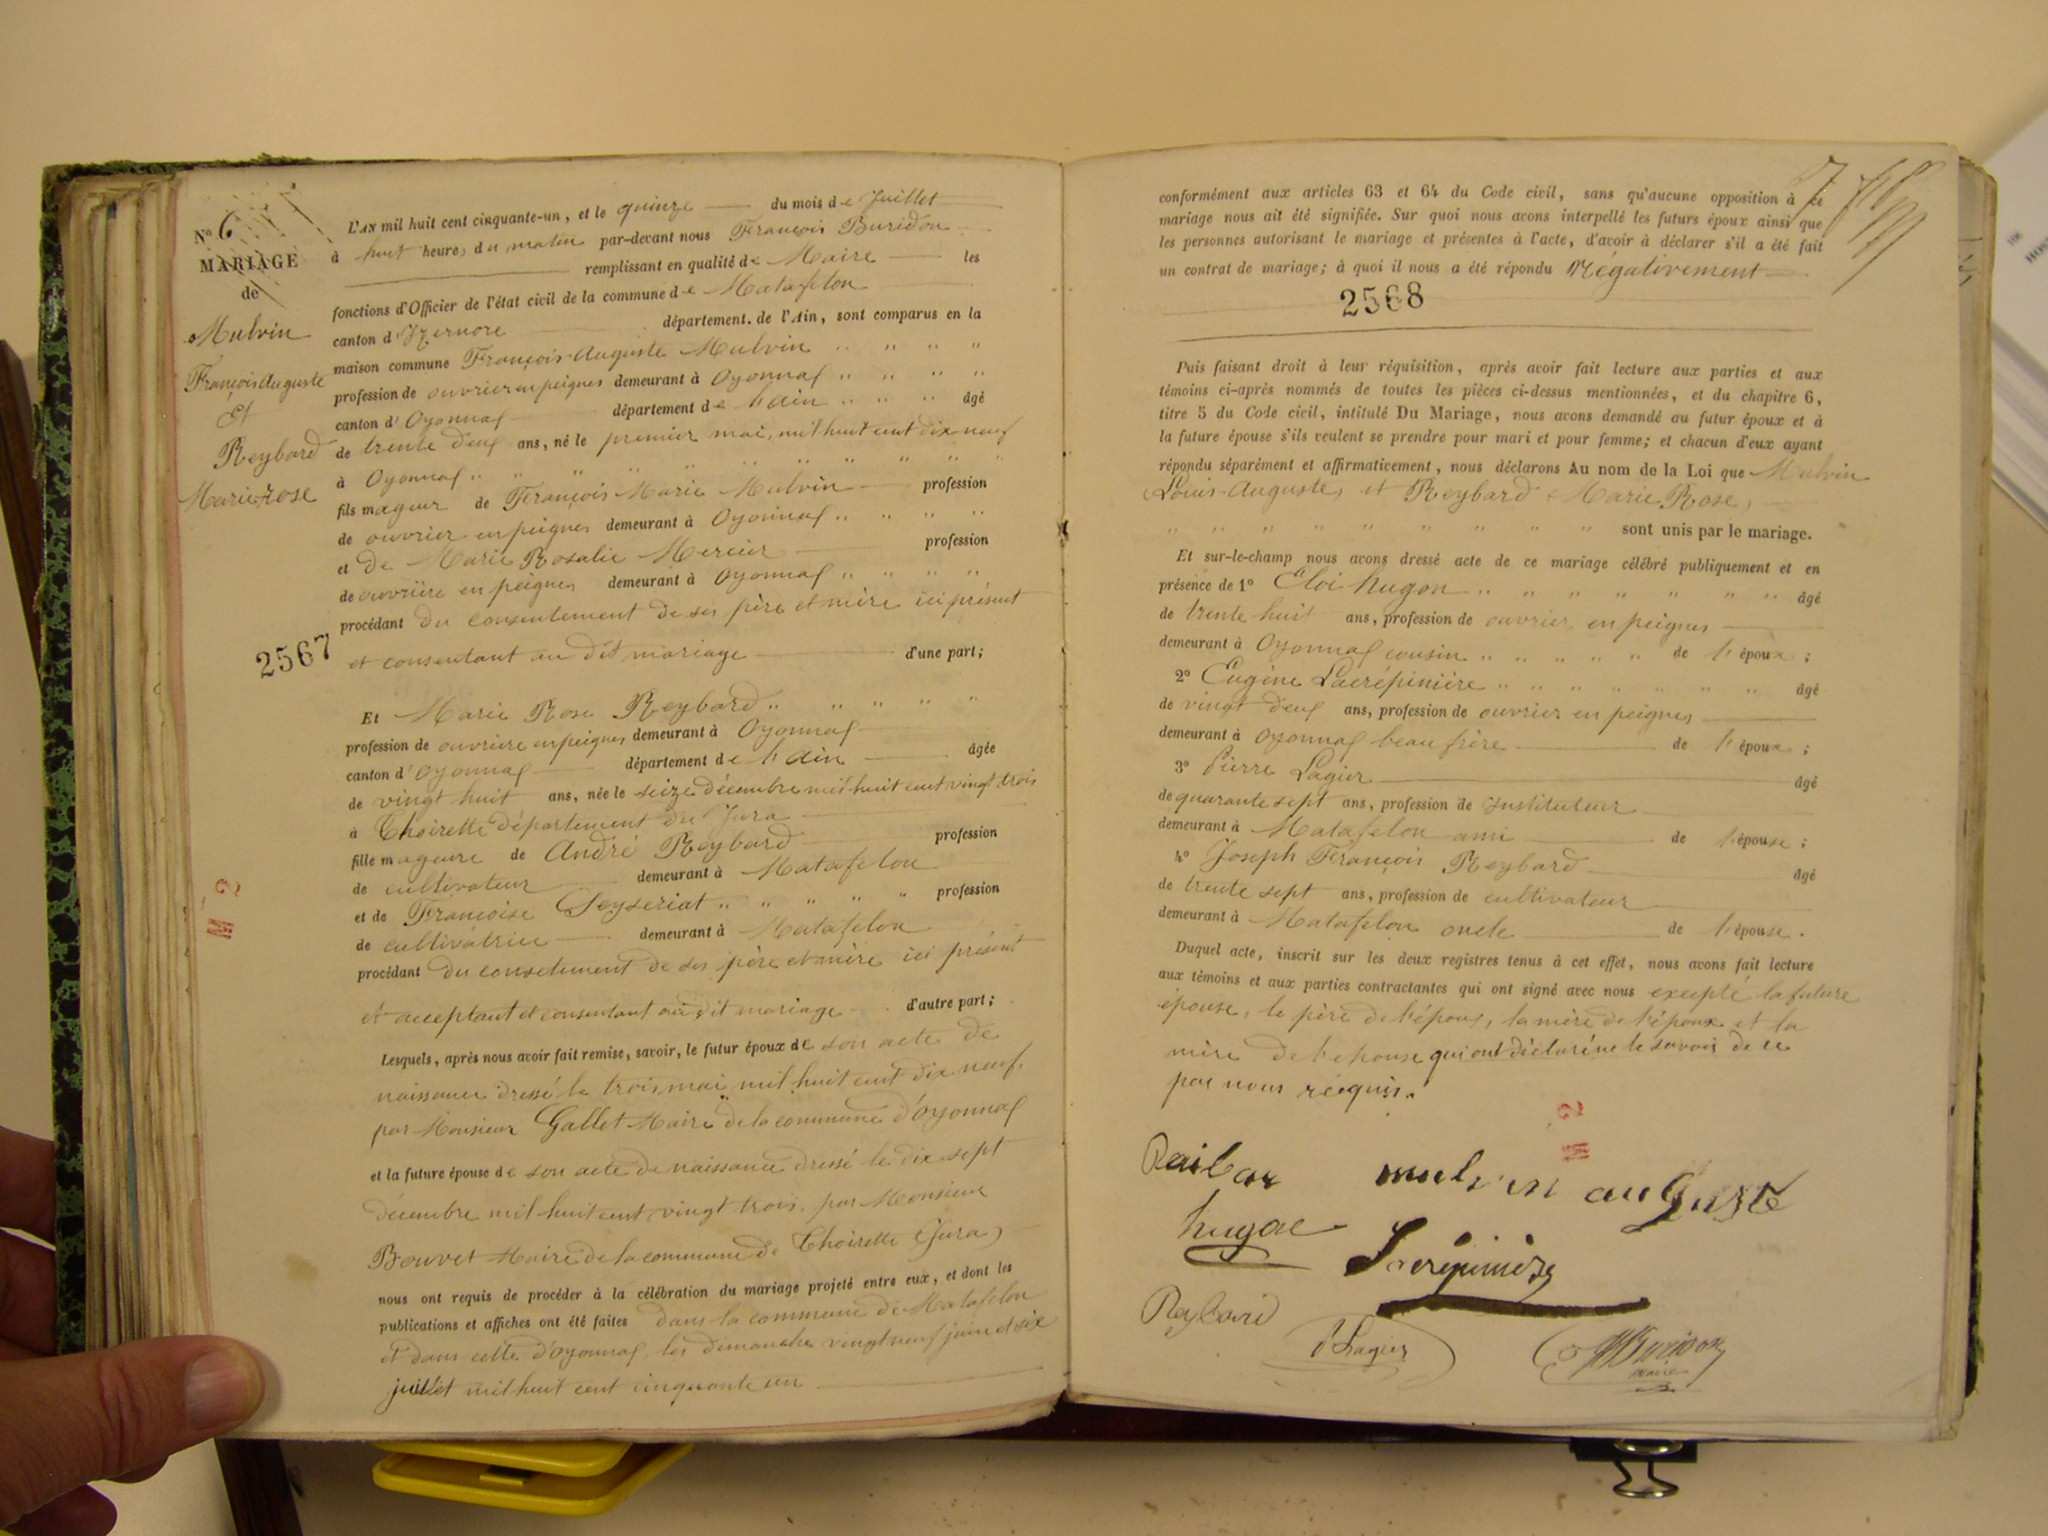 N° 6
MARIAGE
de
Mulvin
François Auguste
Et
Reybard
Marie rose
L'AN mil huit cent cinquante-un, et le quinze du mois de Juillet
à huit heures du matin par-devant nous François Buridon
remplissant en qualité de Maire les
fonctions d'Officier de l'état civil de la commune de Matafelon
canton d'Izernore département de l'Ain, sont comparus en la
maison commune François-Auguste Mulvin " " " "
profession de ouvrier en peignes demeurant à Oyonnax " " " "
canton d'Oyonnax département de l'ain " " " âgé
de trente deux ans, né le premier mai, mil huit cent dix neuf
à Oyonnax " " " " " " " " " "
fils mageur de François Marie Mulvin profession
de ouvrier en peignes demeurant à Oyonnax " " " "
et de Marie Rosalie Mercier profession
de ouvrière en peignes demeurant à Oyonnax " " " "
procédant du consentement de ses père et mère ici présent
2567
et consentant au dit mariage d'une part;
Et Marie Rose Reybard " " " " "
profession de ouvrière en peignes demeurant à Oyonnax
canton d'Oyonnax département de l'ain âgée
de vingt huit ans, née le seize décembre mil huit cent vingt trois
à Thoirette département du Jura
fille mageure de André Reybard profession
de cultivateur demeurant à Matafelon
et de Françoise Seyseriat " " " " " profession
de cultivatrice demeurant à Matafelon
procédant du consetement de ses père et mère ici présent
et acceptant et consentant au dit mariage d'autre part;
Lesquels, après nous avoir fait remise, savoir, le futur époux de son acte de
naissance dressé le trois mai mil huit cent dix neuf.
par Monsieur Gallet Maire de la commune d'Oyonnax
et la future épouse de son acte de naissance dressé le dix sept
décembre mil huit cent vingt trois, par Monsieur
Bouvet Maire de la commune de Thoirette (Jura)
nous ont requis de procéder à la célébration du mariage projeté entre eux, et dont les
publications et affiches ont été faites dans la commune de Matafelon
et dans celle d'Oyonnax les dimanche vingt neuf juin et six
juillet mil huit cent cinquante un
conformément aux articles 63 et 64 du Code civil, sans qu'aucune opposition à ce
mariage nous ait été signifiée. Sur quoi nous avons interpellé les futurs époux ainsi que
les personnes autorisant le mariage et présentes à l'acte, d'avoir à déclarer s'il a été fait
un contrat de mariage; à quoi il nous a été répondu Négativement
2568
Puis faisant droit à leur réquisition, après avoir fait lecture aux parties et aux
témoins ci-après nommés de toutes les pièces ci-dessus mentionnées, et du chapitre 6,
titre 5 du Code civil, intitulé Du Mariage, nous avons demandé au futur époux et à
la future épouse s'ils veulent se prendre pour mari et pour femme; et chacun d'eux ayant
répondu séparément et affirmativement, nous déclarons Au nom de la Loi que Mulvin
Louis-Auguste, et Reybard Marie Rose,
" " " " " " " " " sont unis par le mariage.
Et sur-le-champ nous avons dressé acte de ce mariage célébré publiquement et en
présence de 1° Eloi hugon " " " " " " " âgé
de trente huit ans, profession de ouvrier en peignes
demeurant à Oyonnax cousin " " " " " de l'époux ;
2° Eugène Lacrépinière " " " " " " " âgé
de vingt deux ans, profession de ouvrier en peignes
demeurant à Oyonnax beau frère de l'époux ;
3° Pierre Lagier âgé
de quarante sept ans, profession de instituteur
demeurant à Matafelon ami de l'épouse ;
4° Joseph François Reybard âgé
de trente sept ans, profession de cultivateur
demeurant à Matafelon oncle de l'épouse .
Duquel acte, inscrit sur les deux registres tenus à cet effet, nous avons fait lecture
aux témoins et aux parties contractantes qui ont signé avec nous excepté la future
épouse, le père de l'époux, la mère de l'époux et la
mère de l'épouse qui ont déclaré ne le savoir de ce
par nous réquis.
Raibar mulvin auguste
hugon
Lacrépinière
Reybard
P Lagier
Buridon
maire